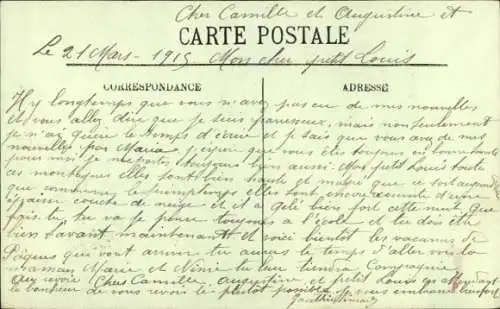 Cher Camille et Augustine et
CARTE POSTALE
Le 21 Mars - 1915 Mon cher petit Louis
CORRESPONDANCE
ADRESSE
Il y longtemps que vous n'avez pas eu de mes nouvelles
et vous allez dire que je suis paresseux, mais non seulement
je n'ai guère le temps d'écrire et je sais que vous avez de mes
nouvelles par Maria j'espère que vous êtes toujours en bonne santé
pour moi je me porte toujours bien aussi. Mon petit Louis toute
ces montagnes elles sont bien haute et malgré que ce soit aujourd'hui
que commence le printemps elles sont encore d'une
épaisse couche de neige et il a gelé bien fort cette nuit. Que
fais tu, tu va je pense toujours à l'école et tu dois être
bien savant maintenant. Et voici bientôt les vacances de
Pâques qui vont arriver tu auras le temps d'aller voir ta
maman Marie et Ninie tu leur tiendra Compagnie
au revoir Cher Camille, Augustine et petit Louis en attendant
le bonheur de vous revoir le plutôt possible je vous embrasse